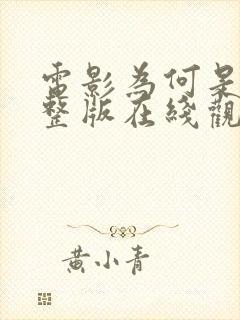 電影為何是
整版在綫觀
黃小青